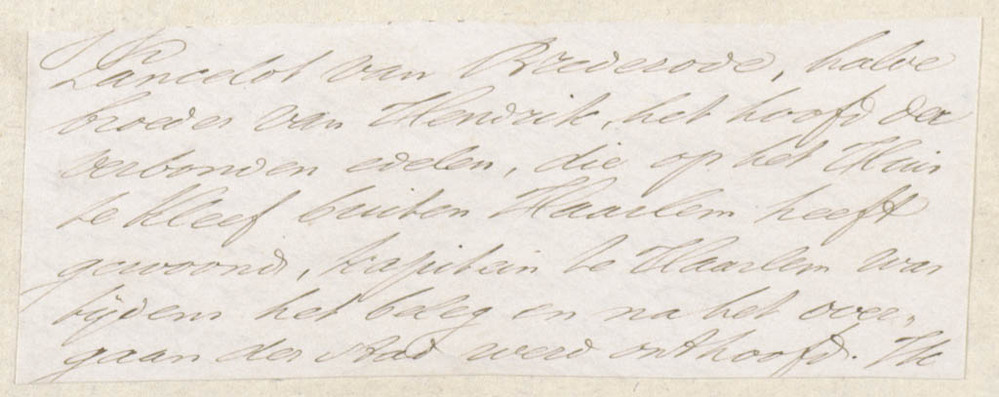 Lancelot van Brederode, halve
broeder van Hendrik, het hoofd der
verbonden edelen, die op het Huis
te Kleef buiten Haarlem heeft
gewoond, kapitein te Haarlem was
tijdens het beleg en na het over-
gaan der stad werd onthoofd. Ik